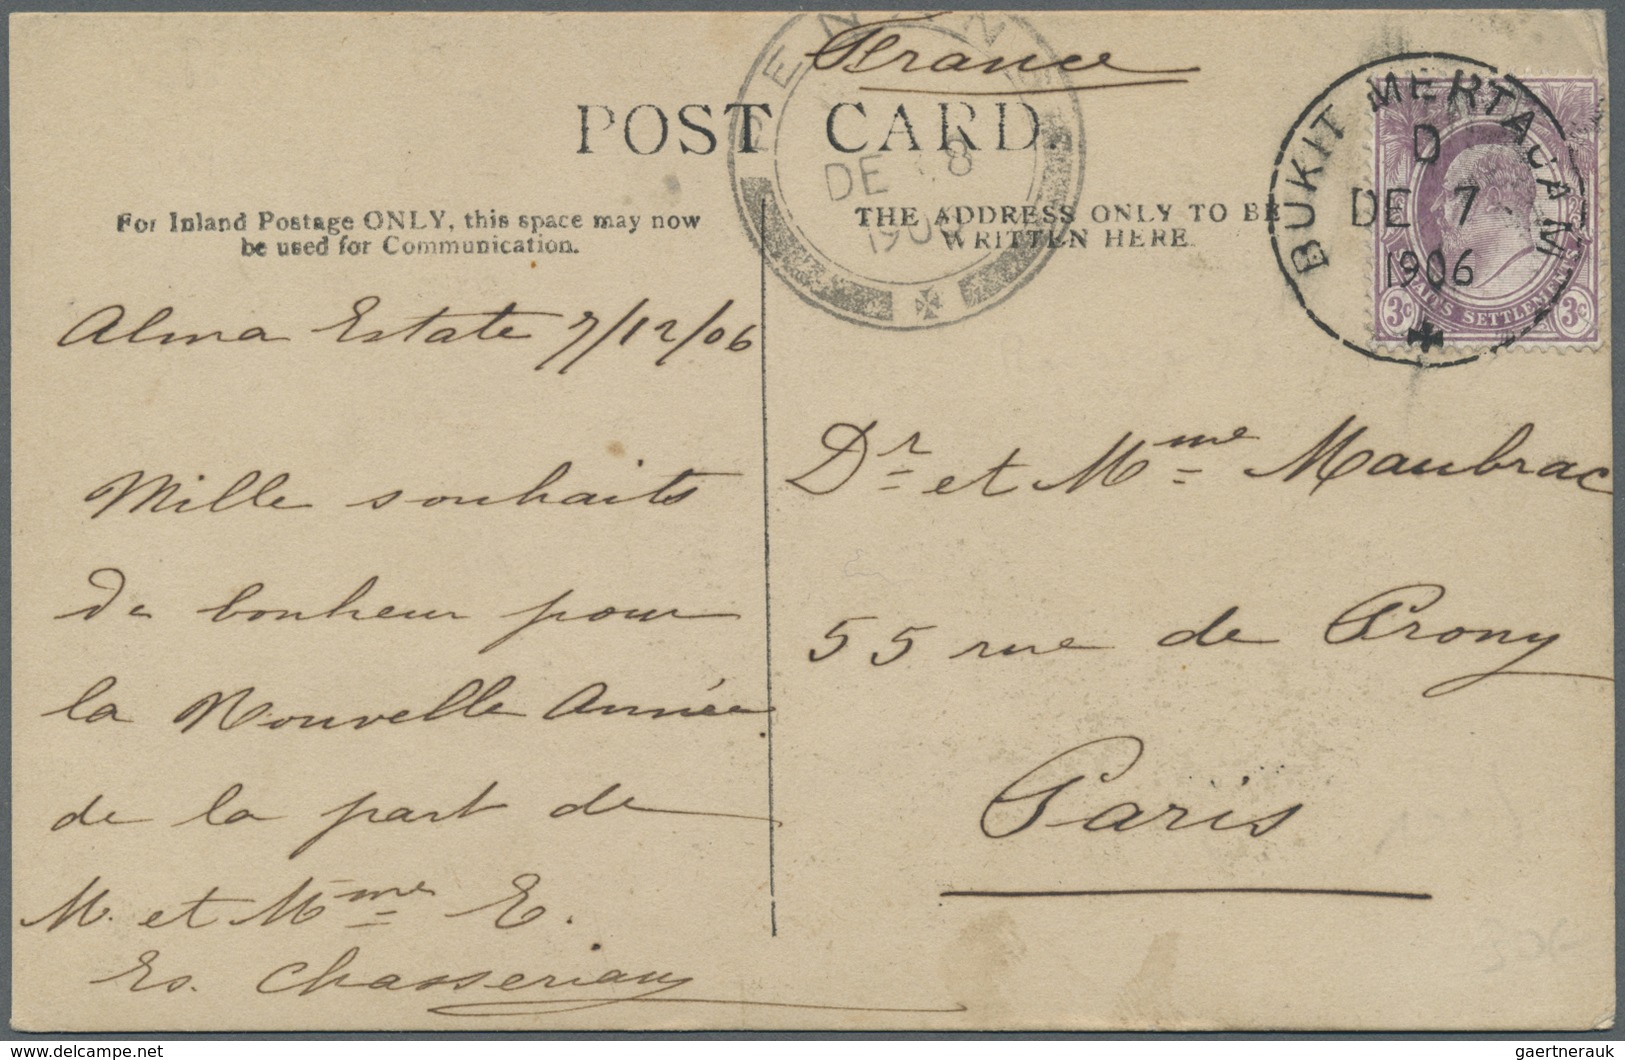 France
POST CARD.
PENANG
DE 8
1906
BUKIT MERTAJAM
D
DE 7
1906
STRAITS SETTLEMENTS
3c 3c
For Inland Postage ONLY, this space may now
be used for Communication.
THE ADDRESS ONLY TO BE
WRITTEN HERE
Alma Estate 7/12/06
Mille souhaits
de bonheur pour
la Nouvelle Année
de la part de
M. et Mme E.
Es. Chasseriau
Dr et Mme Maubrac
55 rue de Prony
Paris
gaertnerauk